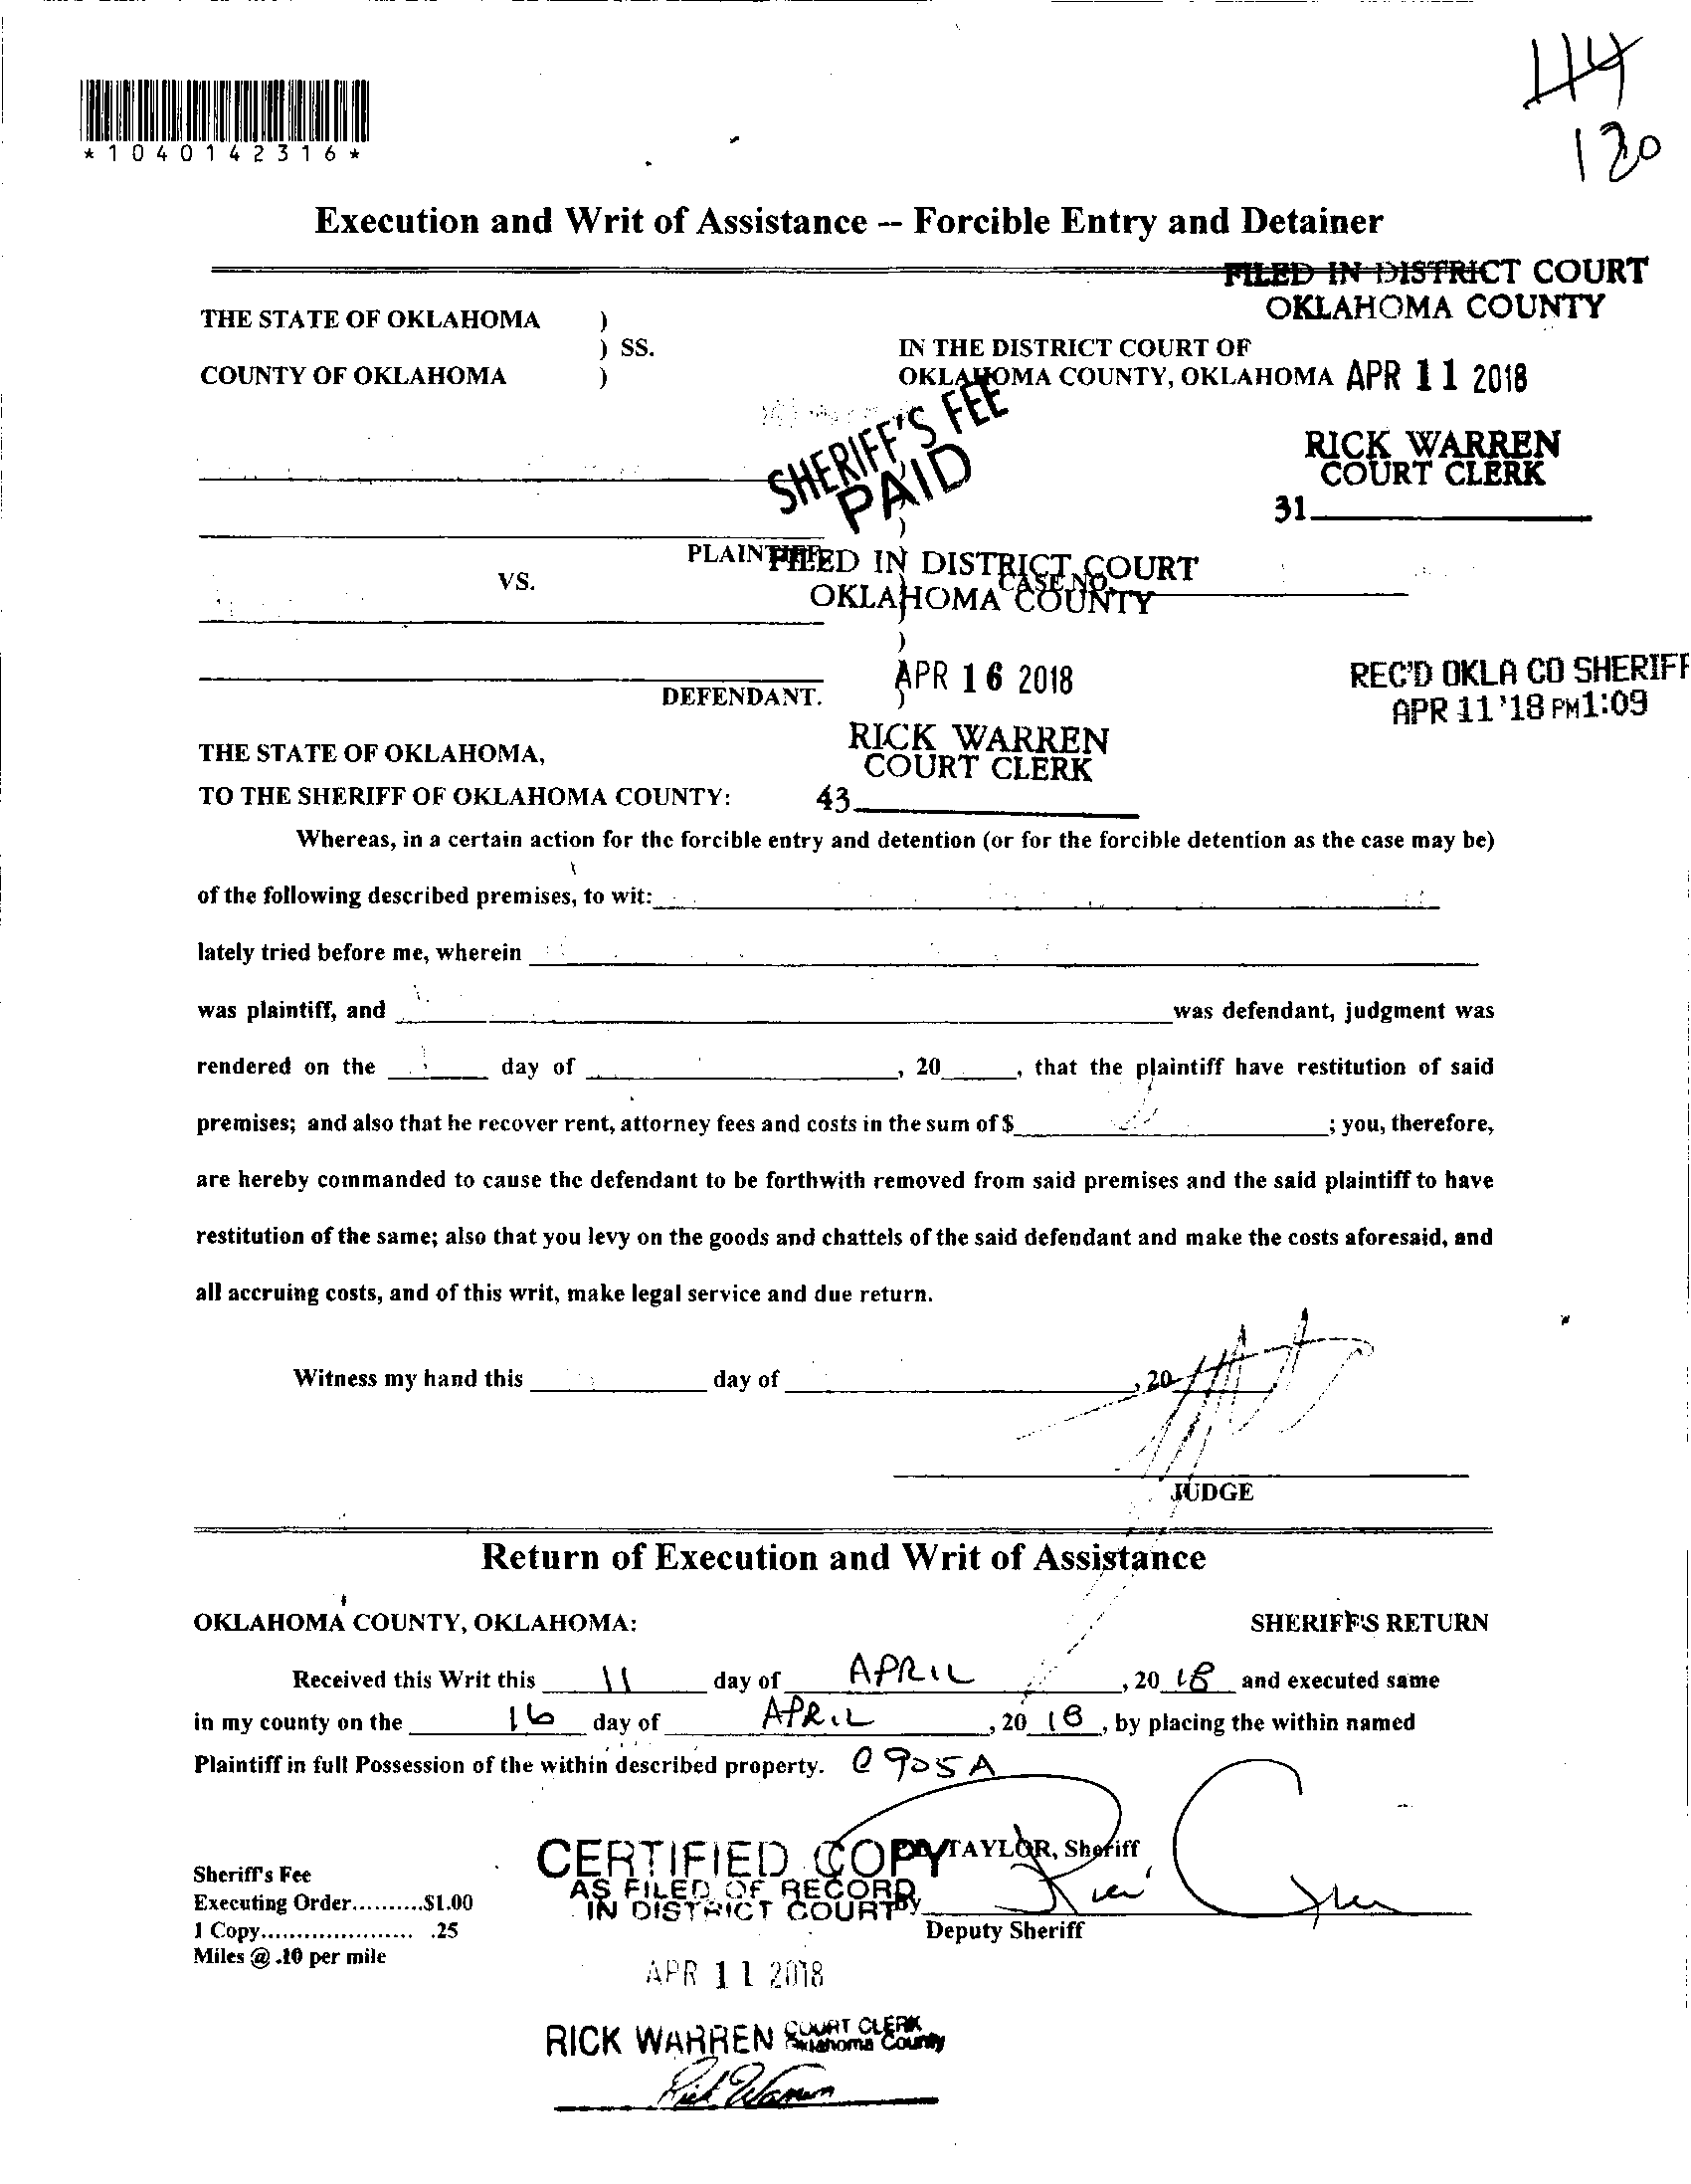 114
120
*1040142316*
Execution and Writ of Assistance -- Forcible Entry and Detainer
FILED IN DISTRICT COURT
OKLAHOMA COUNTY
THE STATE OF OKLAHOMA )
) SS.
IN THE DISTRICT COURT OF
COUNTY OF OKLAHOMA )
OKLAHOMA COUNTY, OKLAHOMA
APR 11 2018
SHERIFF'S FEE
PAID
RICK WARREN
COURT CLERK
31
PLAINTIFF,
FILED IN DISTRICT COURT
VS.
CASE NO.
OKLAHOMA COUNTY
APR 16 2018
REC'D OKLA CO SHERIFF
APR 11 '18 PM 1:09
DEFENDANT.
RICK WARREN
COURT CLERK
THE STATE OF OKLAHOMA,
TO THE SHERIFF OF OKLAHOMA COUNTY:
43
Whereas, in a certain action for the forcible entry and detention (or for the forcible detention as the case may be)
of the following described premises, to wit:
lately tried before me, wherein
was plaintiff, and was defendant, judgment was
rendered on the day of , 20 , that the plaintiff have restitution of said
premises; and also that he recover rent, attorney fees and costs in the sum of $ ; you, therefore,
are hereby commanded to cause the defendant to be forthwith removed from said premises and the said plaintiff to have
restitution of the same; also that you levy on the goods and chattels of the said defendant and make the costs aforesaid, and
all accruing costs, and of this writ, make legal service and due return.
Witness my hand this day of , 20
JUDGE
Return of Execution and Writ of Assistance
OKLAHOMA COUNTY, OKLAHOMA: SHERIFF'S RETURN
Received this Writ this 11 day of APRIL , 20 18 and executed same
in my county on the 16 day of APRIL , 20 18 , by placing the within named
Plaintiff in full Possession of the within described property. @ 905A
CERTIFIED COPY
TAYLOR, Sheriff
AS FILED OF RECORD
IN DISTRICT COURT
By
Deputy Sheriff
Sheriff's Fee
Executing Order..........$1.00
1 Copy...................... .25
Miles @ .10 per mile
APR 11 2018
RICK WARREN COURT CLERK
Oklahoma County
Rick Warren